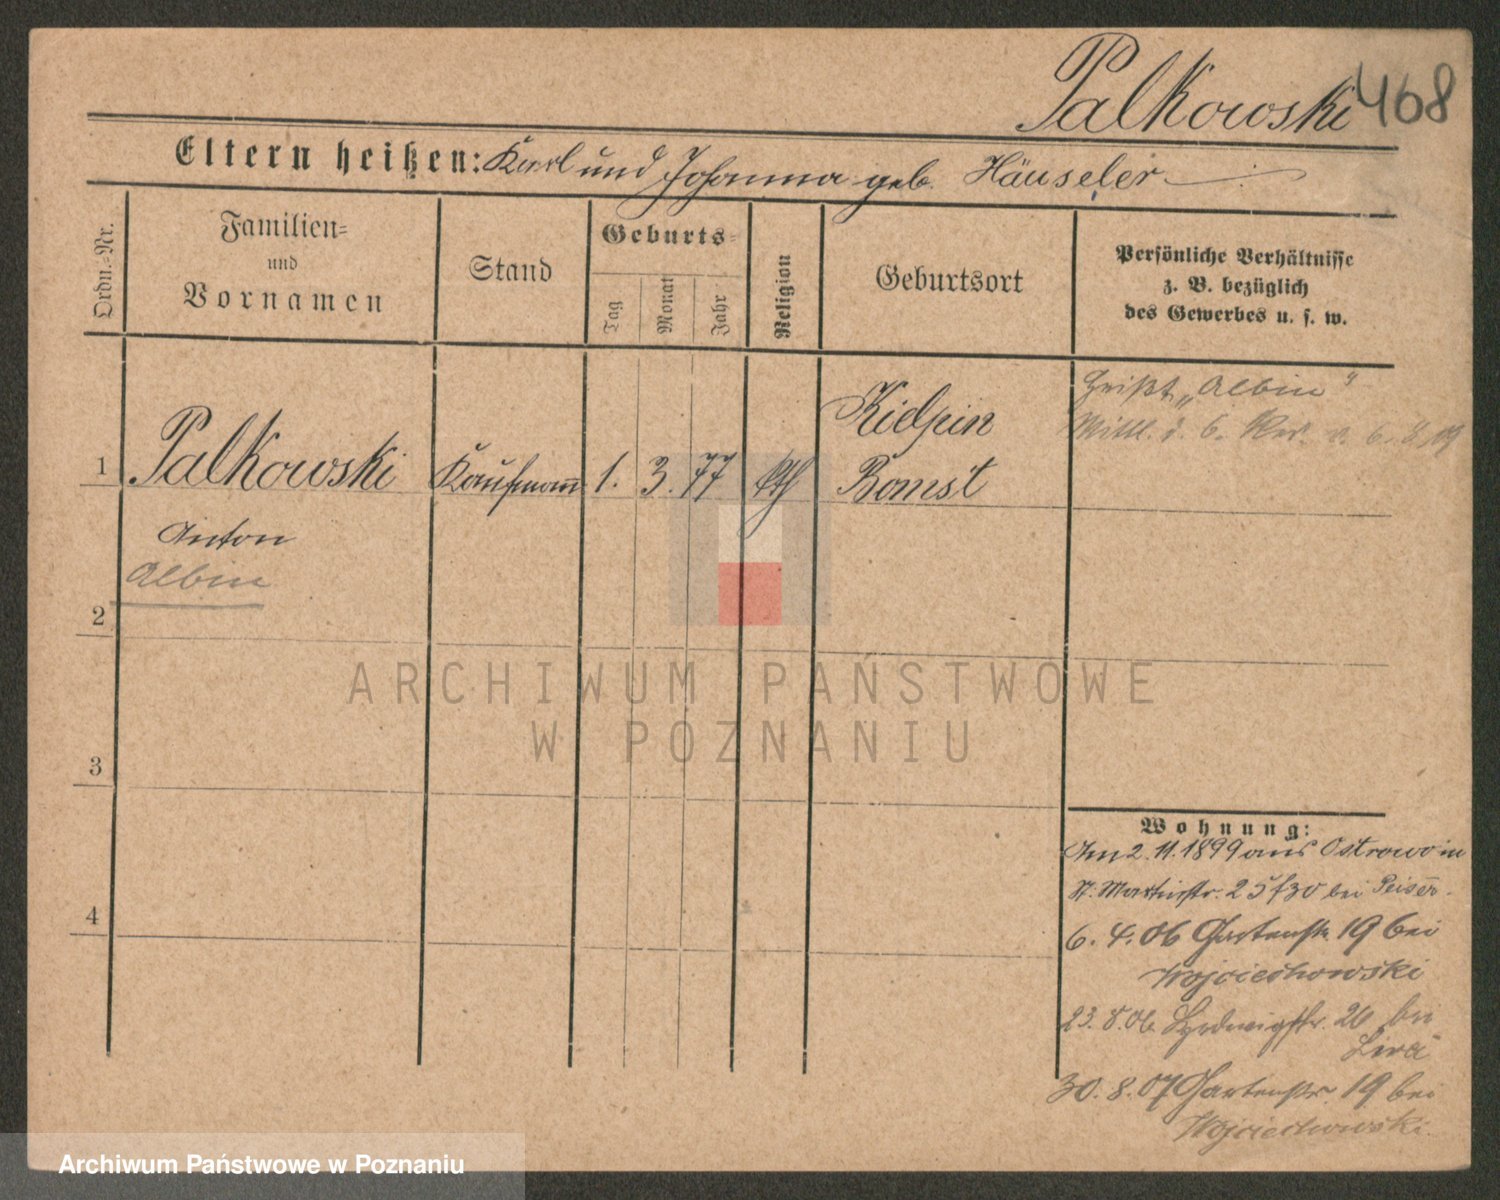 Palkowski 468
Eltern heißen: Karl und Johanna geb. Häuseler
Ordn.-Nr.
Familien-
und
Vornamen
Stand
Geburts-
Tag
Monat
Jahr
Religion
Geburtsort
Persönliche Verhältnisse
z. B. bezüglich
des Gewerbes u. s. w.
1
Palkowski
Anton
Albin
Kaufmann
1.
3.
77
kth
Kielpin
Bomst
heißt „Albin"
Mittl. d. 6. Rev. v. 6. 8. 09
2
3
4
Wohnung:
Am 2. 11. 1899 aus Ostrowo in
St. Martinstr. 25/30 bei Peiser.
6. 4. 06 Gartenstr. 19 bei
Wojciechowski
23. 8. 06 26 bei
30. 8. 07 Gartenstr. 19 bei
Wojciechowski.
ARCHIWUM PAŃSTWOWE
W POZNANIU
Archiwum Państwowe w Poznaniu